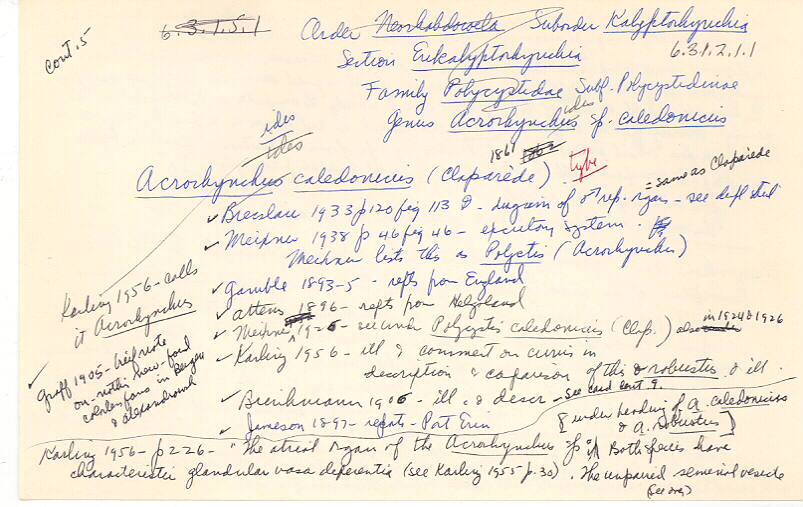 cont. 5
6.3.1.5.1
Order Neorhabdocoela Suborder Kalyptorhynchia
6.3.1.2.1.1
Section Eukalyptorhynchia
Family Polycystidae Subf. Polycystidinae
Genus Acrorhynchus ides sp. caledonicus
ides
ides
Acrorhynchus caledonicus (Claparède) 1861 type
= same as Claparede
✓ Bresslau 1933 p120 fig 113 - diagram of ♂ rep. organs - see
✓ Meixner 1938 p 46 fig 46 - excretory system.
Meixner lists this as Polycystis (Acrorhynchus)
✓ Gamble 1893-5 - repts from England
✓ Attems 1896 - repts from Helgoland
✓ Meixner 1926 - see under Polycystis caledonicus (Clap.) also in 1924 & 1926
Karling 1956 - calls
it Acrorhynchus
✓ Karling 1956 - ill & comment on cirrus in
description & comparison of this & robustus & ill.
✓ Graff 1905 - brief note
on nothing new - found
in Bergen
& Alexandrovsk
✓ Brinkmann 1906 - ill. & descr - see card cont. 9.
✓ Jameson 1897 - repts - Port Erin
[under heading of A. caledonicus
& A. robustus]
Karling 1956 - p226 - "The atrial organ of the Acrorhynchus sp Both species have
characteristic glandular vasa deferentia (see Karling 1955 p. 30). The unpaired seminal vesicle
(see over)